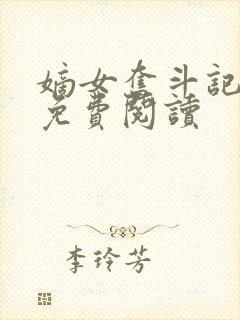 嫡女奮斗記
免費閱讀
李玲芳